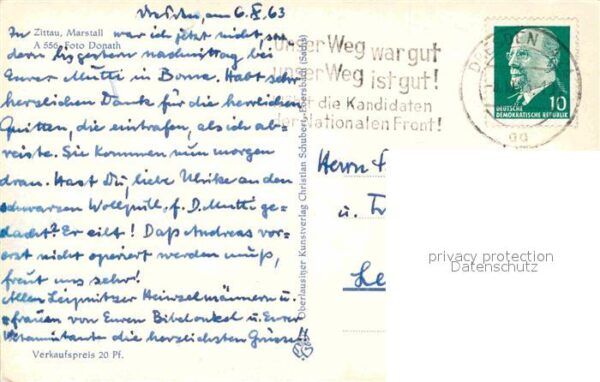 Dresden, am 6.X.63
Zittau, Marstall
A 556 Foto Donath
In war ich jetzt nicht, son
dern bis gestern nachmittag bei
Eurer Mutti in Borna. Habt sehr
herzlichen Dank für die herrlichen
Quitten, die eintrafen, als ich ab-
reiste. Sie kommen nun morgen
dran. Hast Du, liebe Ulrike an den
schwarzen Wollpulli f. D. Mutti ge-
dacht? Er eilt! Daß Andreas vor-
erst nicht operiert werden muß,
freut uns sehr!
Allen Leipnitzer Heinzelmännern u.
-frauen von Euren Bibelonkel u. Eurer
tante die herzlichsten Grüsse!
Verkaufspreis 20 Pf.
Oberlausitzer Kunstverlag Christian Schubert, Ebersbach (Sachs)
Unser Weg war gut
unser Weg ist gut!
die Kandidaten
der Nationalen Front!
DRESDEN
DEUTSCHE
DEMOKRATISCHE REPUBLIK
10
Herrn
u.
privacy protection
Datenschutz